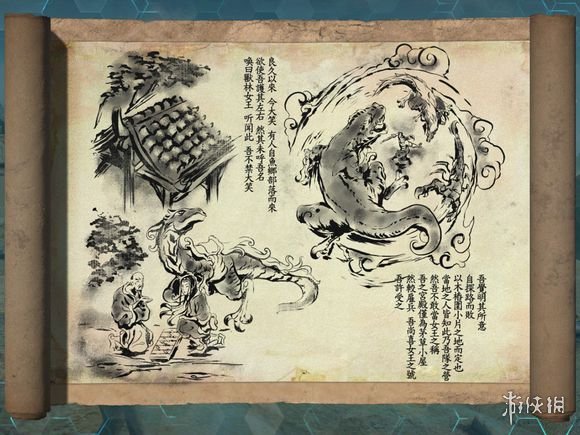 良久以來 今大笑 有人自魚鄉部落而來
欲使吾護其左右 然其未呼吾名
喚曰獸林女王 听聞此 吾不禁大笑
吾覺明其所意
自探路而敗
以木樁圍小片之地而定也
當地之人皆知此乃吾隊之營
然吾不敢當女王之稱
吾之宮殿僅為茅草小屋
然較雇兵 吾尚喜女王之號
吾許受之
游侠網